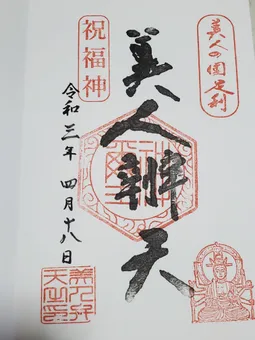 美人の国足利
美人辨天
祝福神
令和三年 四月十八日
美人弁天之印